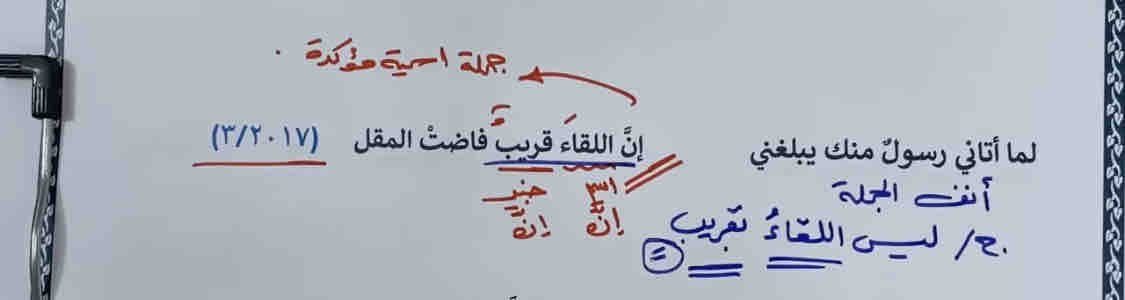 جملة اسمية مؤكدة .
لما أتاني رسولٌ منك يبلغني إنَّ اللقاءَ قريبٌ فاضتْ المقل (٣/٢٠١٧)
اسم خبر
إنَّ إنَّ
أنفِ الجملة
ج/ ليس اللقاءُ بقريبٍ =